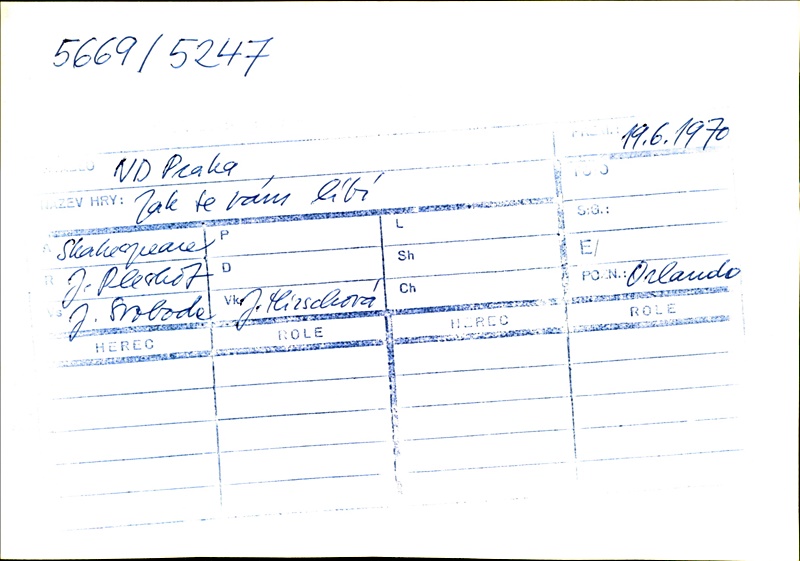 5669/5247
19.6.1970
ND Praha
NÁZEV HRY: Jak se vám líbí
SIG.:
Shakespeare P L
E/
J. Pleskot D Sh
POZN.: Orlando
J. Svoboda Vk J. Hirschová Ch
HEREC ROLE HEREC ROLE